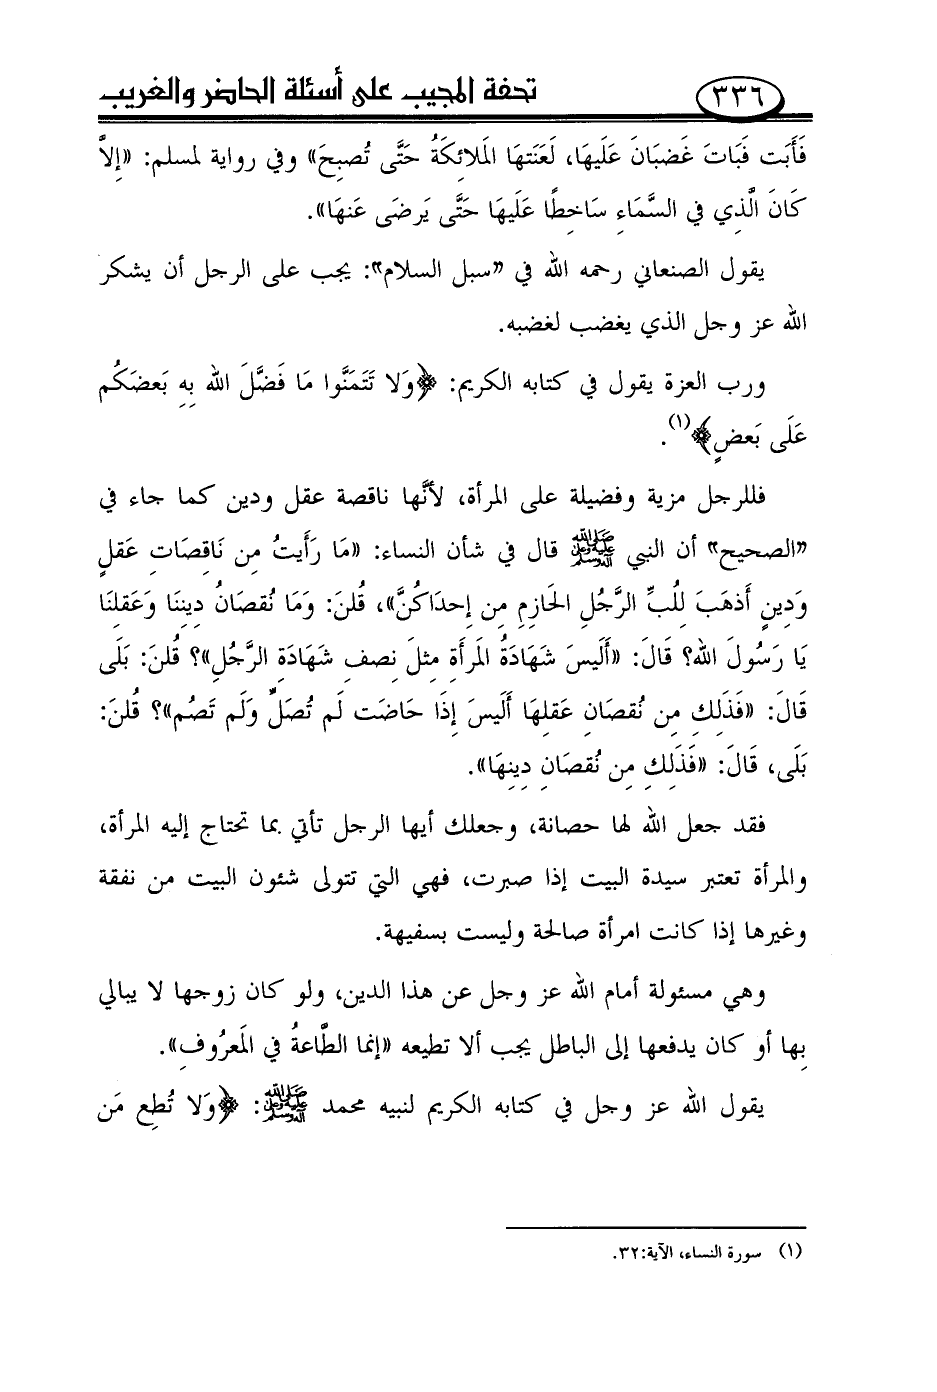 ٣٣٦ تحفة المجيب على أسئلة الحاضر والغريب
فَأَبَت فَبَاتَ غَضبَانَ عَلَيهَا، لَعَنَتهَا المَلائِكَةُ حَتَّى تُصبِحَ» وفي رواية لمسلم: «إِلاَّ
كَانَ الَّذِي في السَّمَاءِ سَاخِطًا عَلَيهَا حَتَّى يَرضَى عَنهَا».
يقول الصنعاني رحمه الله في «سبل السلام»: يجب على الرجل أن يشكر
الله عز وجل الذي يغضب لغضبه.
ورب العزة يقول في كتابه الكريم: ﴿وَلا تَتَمَنَّوا مَا فَضَّلَ الله بِهِ بَعضَكُم
عَلَى بَعضٍ﴾(١).
فللرجل مزية وفضيلة على المرأة، لأنَّها ناقصة عقل ودين كما جاء في
«الصحيح» أن النبي ﷺ قال في شأن النساء: «مَا رَأَيتُ مِن نَاقِصَاتِ عَقلٍ
وَدِينٍ أَذهَبَ لِلُبِّ الرَّجُلِ الحَازِمِ مِن إِحدَاكُنَّ»، قُلنَ: وَمَا نُقصَانُ دِينِنَا وَعَقلِنَا
يَا رَسُولَ الله؟ قَالَ: «أَلَيسَ شَهَادَةُ المَرأَةِ مِثلَ نِصفِ شَهَادَةِ الرَّجُلِ»؟ قُلنَ: بَلَى
قَالَ: «فَذَلِكِ مِن نُقصَانِ عَقلِهَا أَلَيسَ إِذَا حَاضَت لَم تُصَلِّ وَلَم تَصُم»؟ قُلنَ:
بَلَى، قَالَ: «فَذَلِكِ مِن نُقصَانِ دِينِهَا».
فقد جعل الله لها حصانة، وجعلك أيها الرجل تأتي بما تحتاج إليه المرأة،
والمرأة تعتبر سيدة البيت إذا صبرت، فهي التي تتولى شئون البيت من نفقة
وغيرها إذا كانت امرأة صالحة وليست بسفيهة.
وهي مسئولة أمام الله عز وجل عن هذا الدين، ولو كان زوجها لا يبالي
بِها أو كان يدفعها إلى الباطل يجب ألا تطيعه «إنما الطَّاعةُ في المَعرُوفِ».
يقول الله عز وجل في كتابه الكريم لنبيه محمد ﷺ: ﴿وَلا تُطِع مَن
(١) سورة النساء، الآية:٣٢.